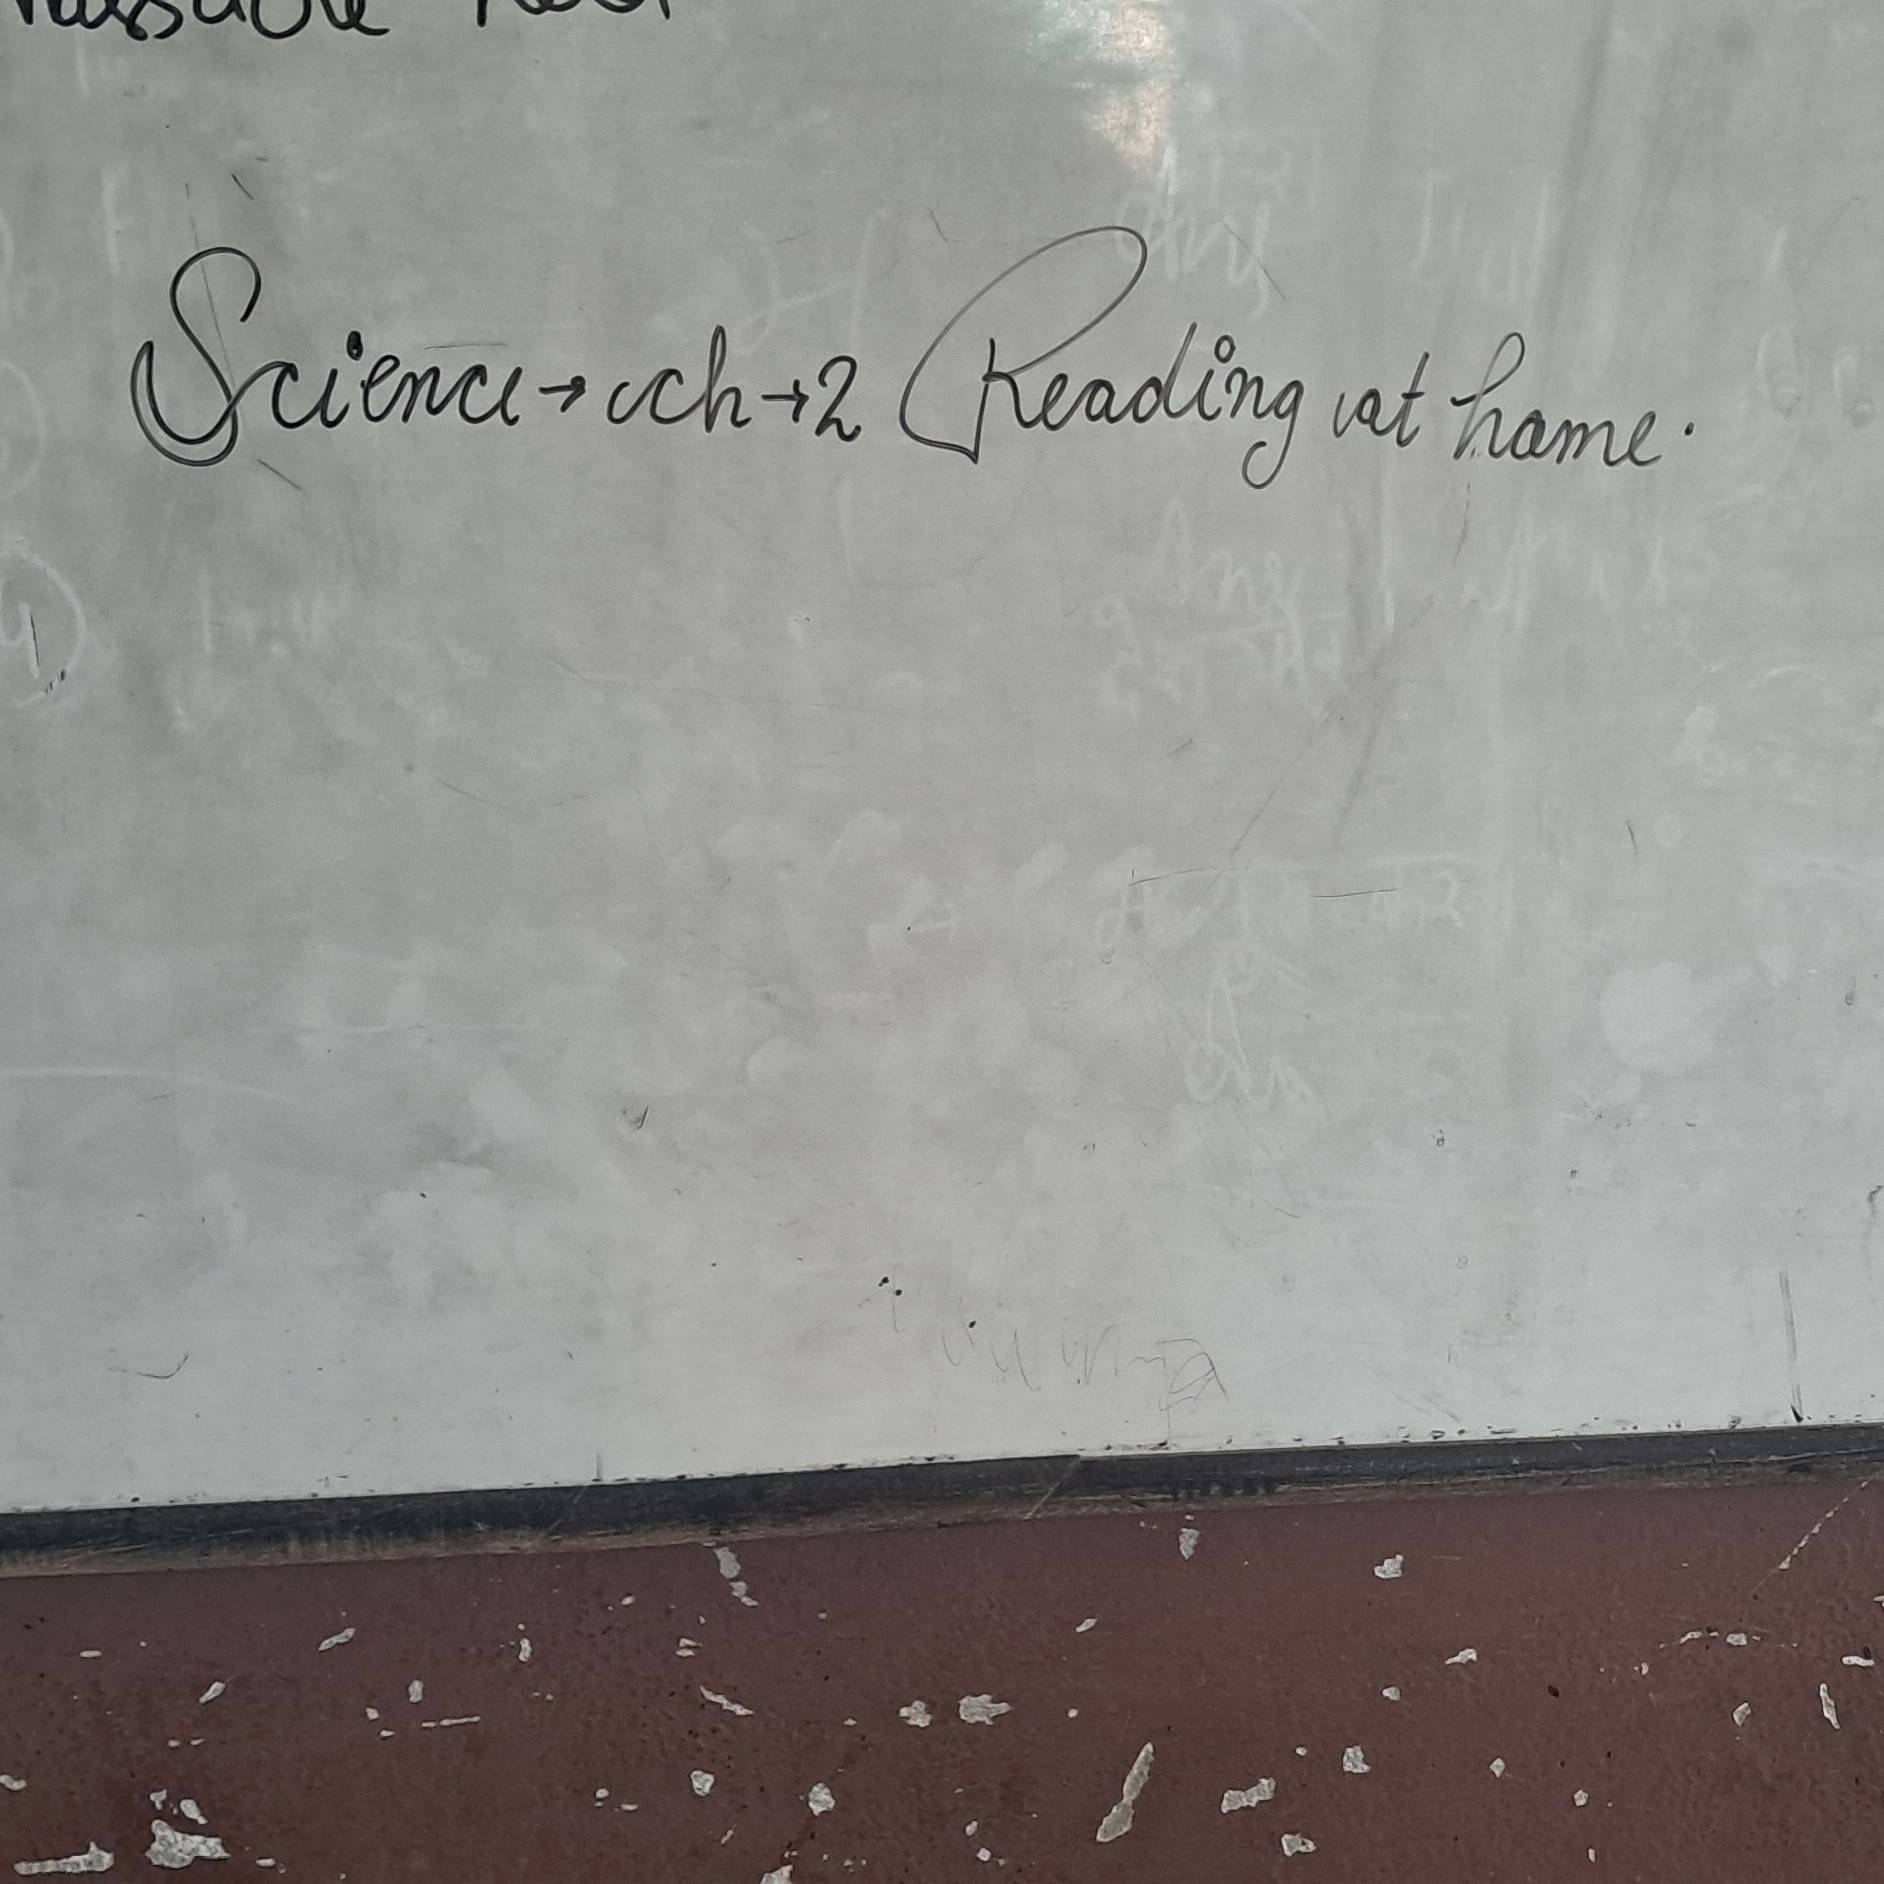 Science → ch → 2 Reading at home.